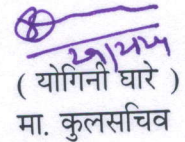 ( योगिनी घारे )
मा. कुलसचिव